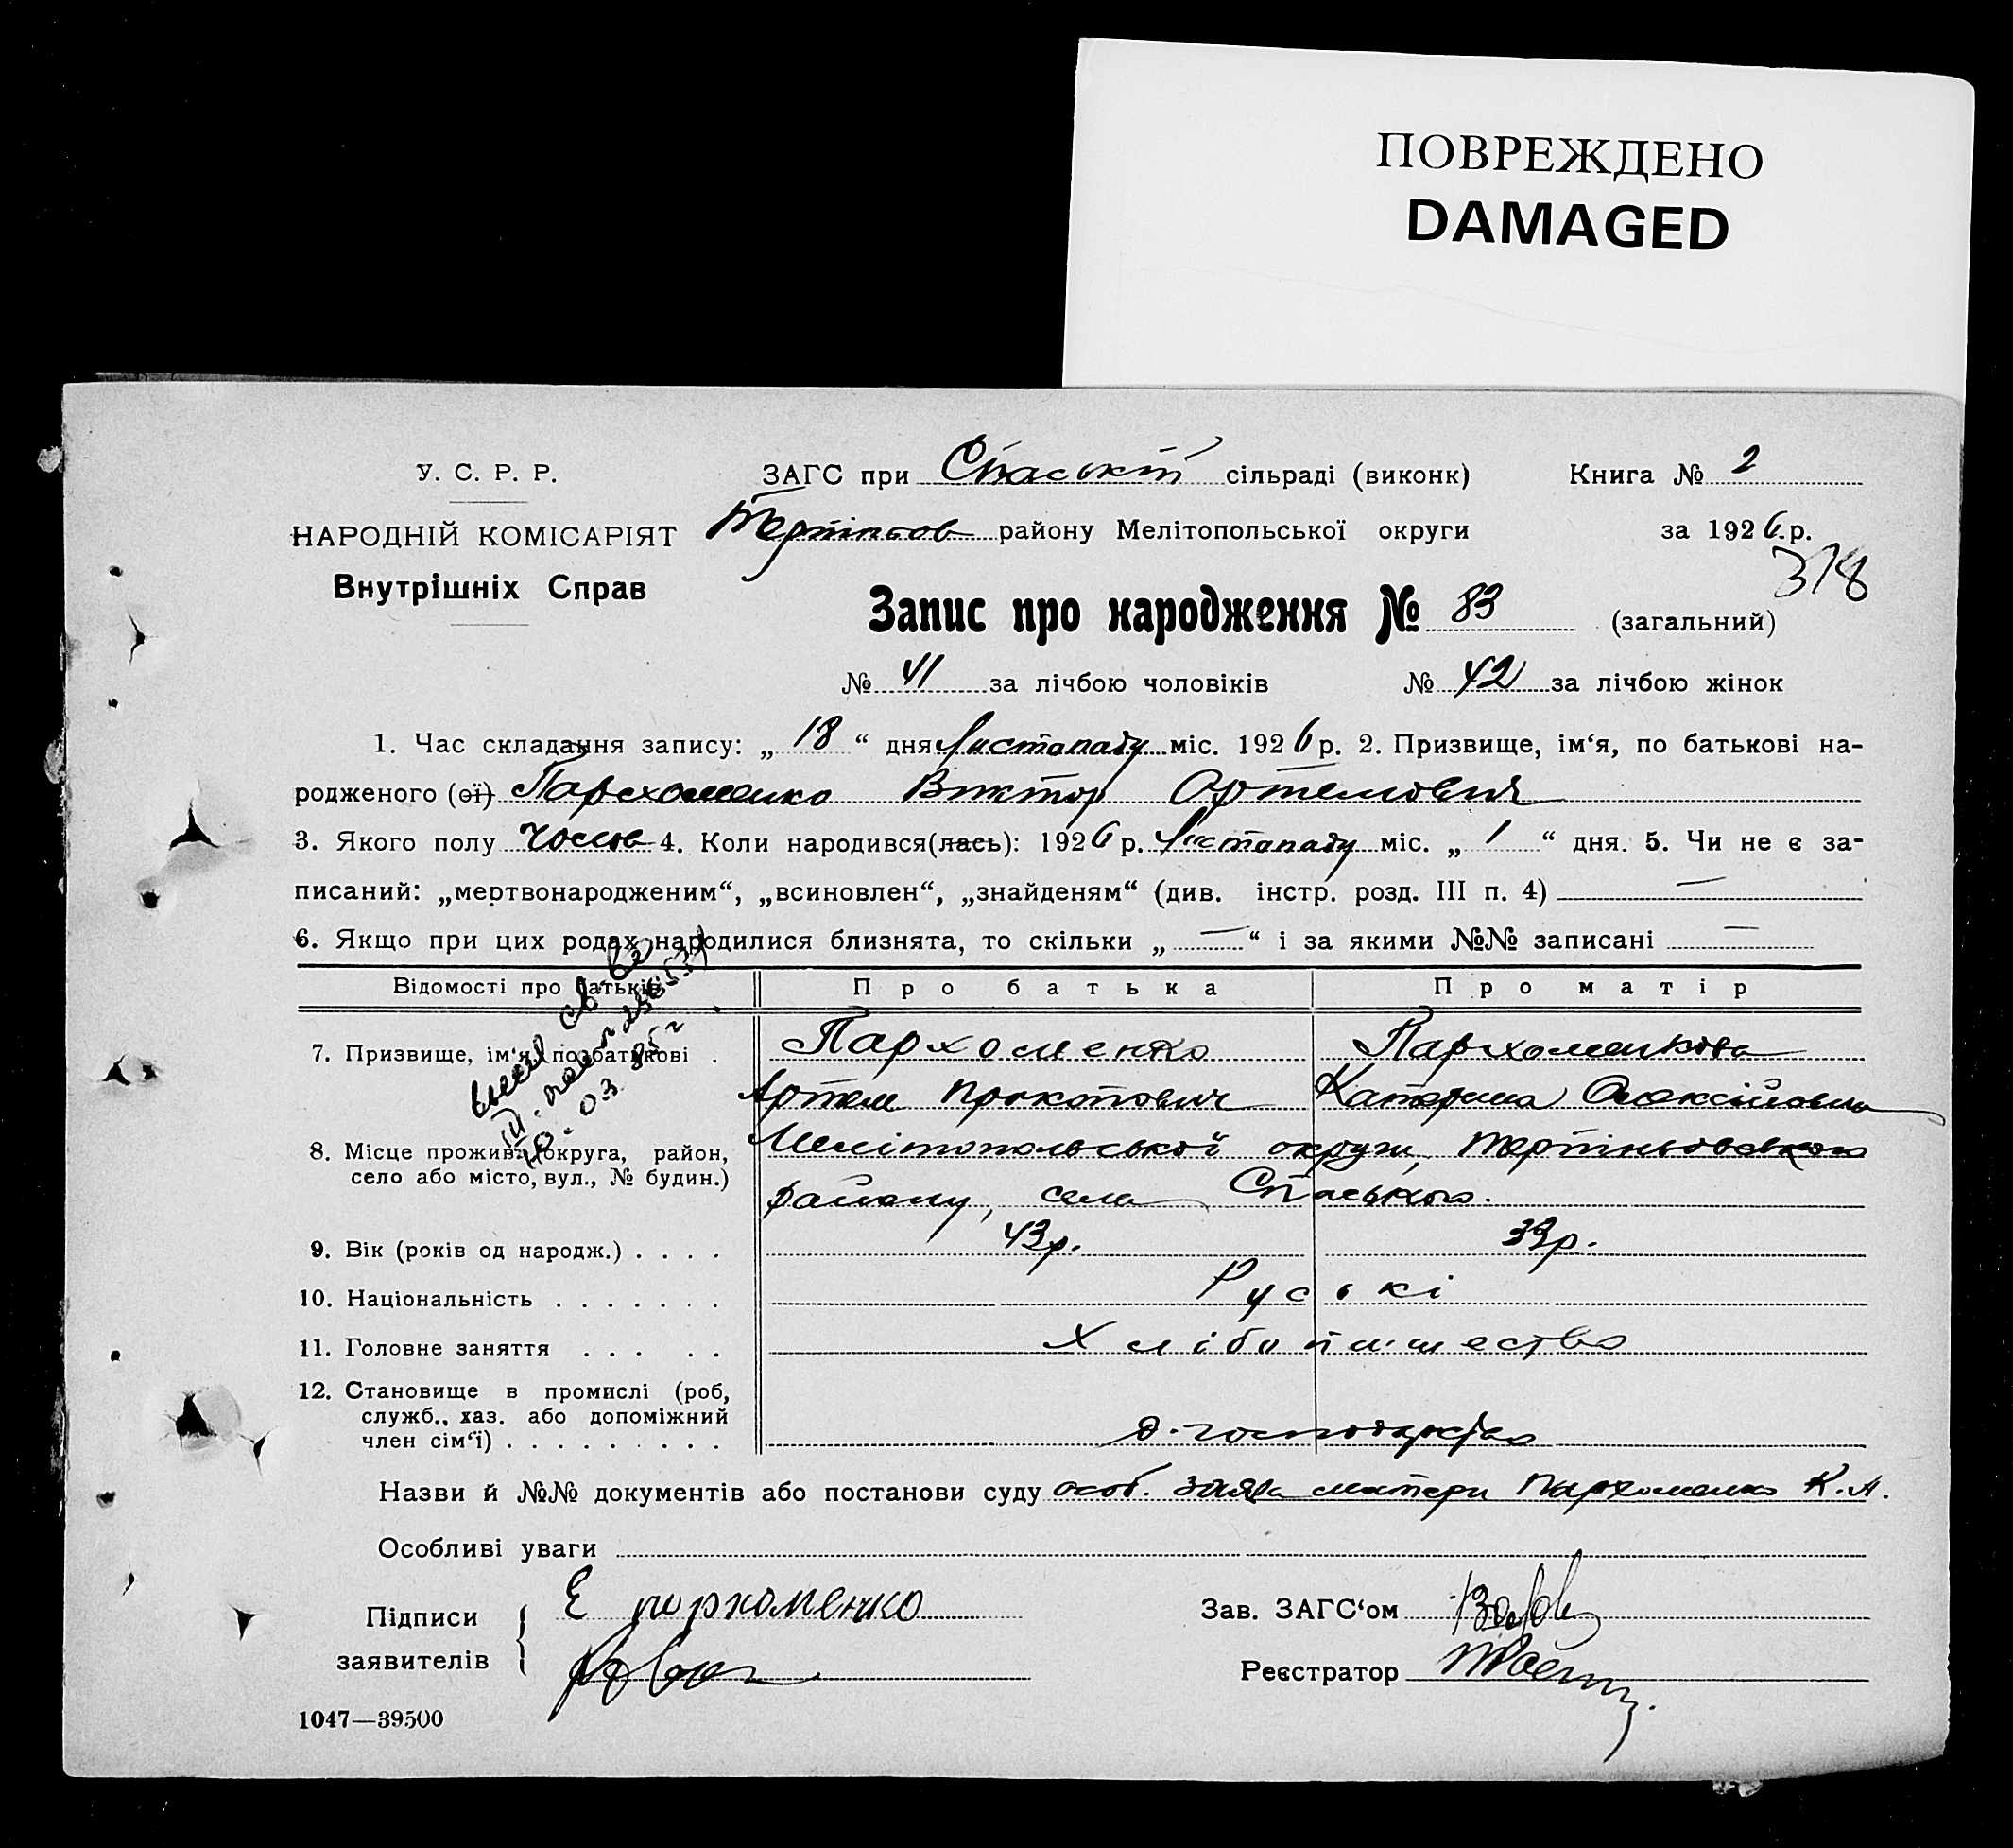 ПОВРЕЖДЕНО
DAMAGED
У. С. Р. Р.
НАРОДНІЙ КОМІСАРІЯТ
Внутрішніх Справ
ЗАГС при Спаській сільраді (виконк)
Книга № 2
Терпіньов району Мелітопольської округи
за 1926 р.
318
Запис про народження № 83 (загальний)
№ 41 за лічбою чоловіків № 42 за лічбою жінок
1. Час складання запису: „ 18 “ дня Листопаду міс. 1926 р. 2. Призвище, ім‘я, по батькові на-
родженого (ої) Пархоменко Віктор Артемович
3. Якого полу чолов 4. Коли народився(лась): 1926 р. Листопаду міс. „ 1 “ дня. 5. Чи не є за-
писаний: „мертвонародженим“, „всиновлен“, „знайденям“ (див. інстр. розд. III п. 4) —
6. Якщо при цих родах народилися близнята, то скільки „ — “ і за якими №№ записані —
Відомості про батьків
Про батька
Про матір
7. Призвище, ім‘я, по батькові .
Пархоменко
Пархоменкова
Артем Прокопович
Катерина Олексіївна
8. Місце прожив. (округа, район,
село або місто, вул., № будин.)
Мелітопольської округи, Терпіньовського
району, села Спаського.
9. Вік (років од народж.) . . . .
43р.
33р.
10. Національність . . . . . . .
Руські
11. Головне заняття . . . . .
Хлібопашество
12. Становище в промислі (роб,
служб., хаз. або допоміжний
член сім‘ї) . . . . . . . . .
д. господарство
03. 85 г
Назви й №№ документів або постанови суду особ. заява матери Пархоменко К.А.
Особливі уваги
Підписи
заявителів
Е пархоменко
Зав. ЗАГС‘ом
Реєстратор
1047—39500